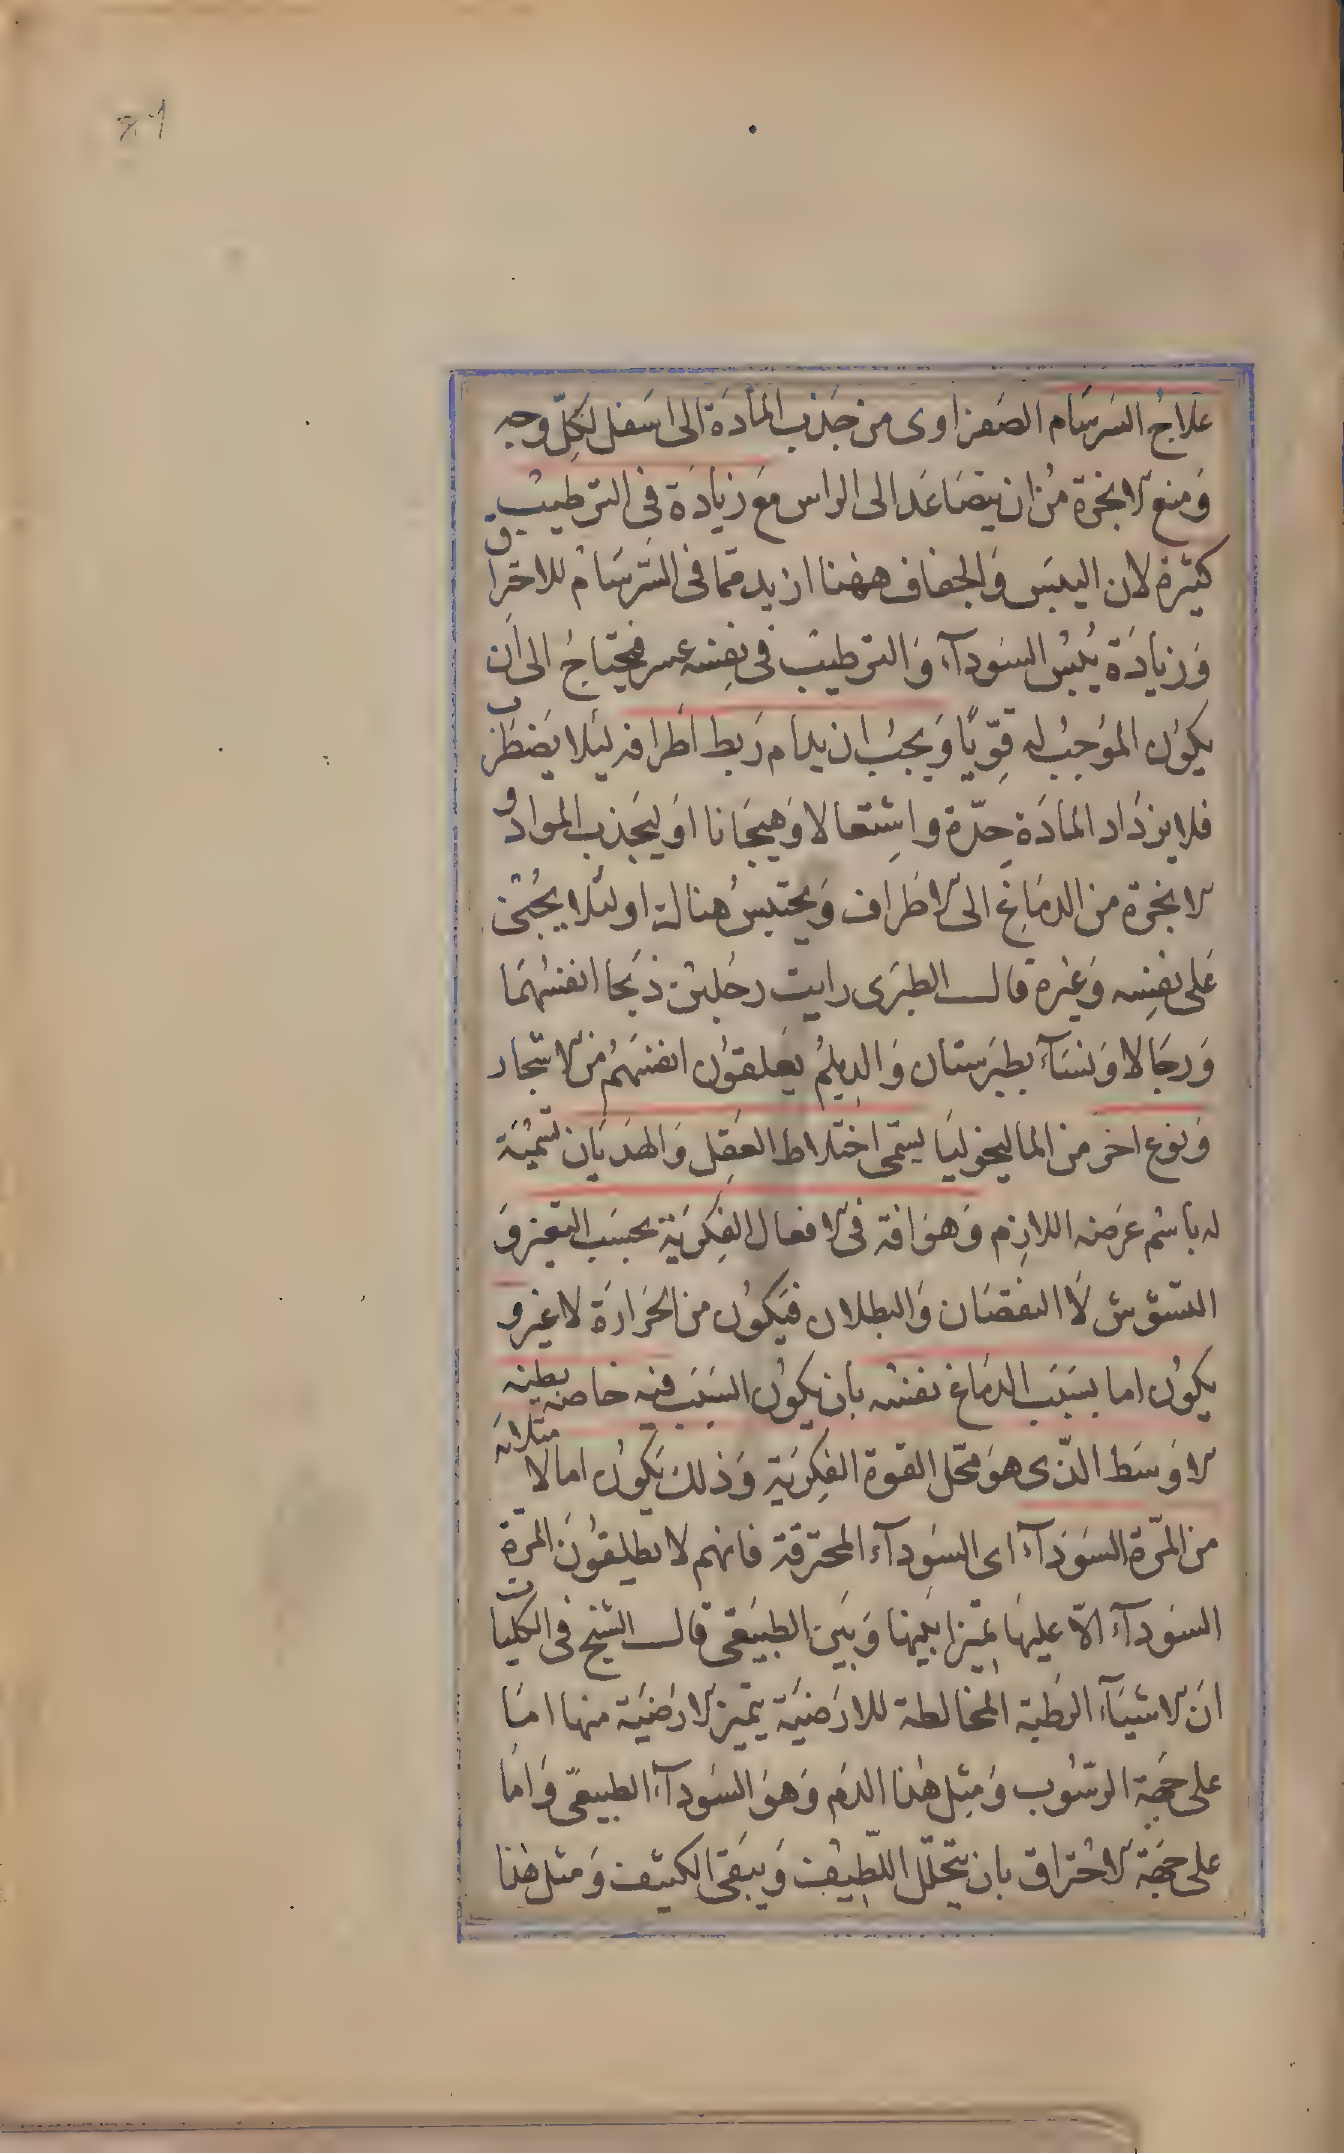 علاج السرسام الصفراوى من جذب المادة الى اسفل لكل وجه
ومنع الابخرة من ان يتصاعد الى الراس مع زيادة فى الترطيب
كثيرة لان اليبس والجفاف ههنا ازيد مما فى السرسام للاحتراق
وزيادة يبس السودآء والترطيب فى نفسه عسر فيحتاج الى ان
يكون الموجب له قويا ويجب ان يدام ربط اطرافه لئلا يضطرب
فلا يزداد المادة حدة واشتعالا وهيجانا او ليجذب المواد و
الابخرة من الدماغ الى الاطراف ويحتبس هناك او لئلا يجنى
على نفسه وغيره قال الطبرى رايت رجلين ذبحا انفسهما
ورجالا ونسآء بطبرستان والديلم يعلقون انفسهم من الاشجار
ونوع اخر من الماليخوليا يسمى اختلاط العقل والهذيان تسمية
له باسم عرضه اللازم وهو افة فى الافعال الفكرية بحسب التغير و
التشوش لا النقصان والبطلان فيكون من الحرارة لا غير و
يكون اما بسبب الدماغ نفسه بان يكون السبب فيه خاصة بطنه
الاوسط الذى هو محل القوة الفكرية وذلك يكون اما لامتلائه
من المرة السودآء اى السودآء المحترقة فانهم لا يطلقون المرة
السودآء الا عليها تميزا بينها وبين الطبيعى قال الشيخ فى الكليات
ان الاشيآء الرطبة المخالطة للارضية يتميز الارضية منها اما
على جهة الرسوب ومثل هذا الدم وهو السودآء الطبيعى واما
على جهة الاحتراق بان يتحلل اللطيف ويبقى الكثيف ومثل هذا